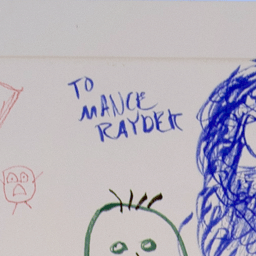 TO
MANCE
RAYDER